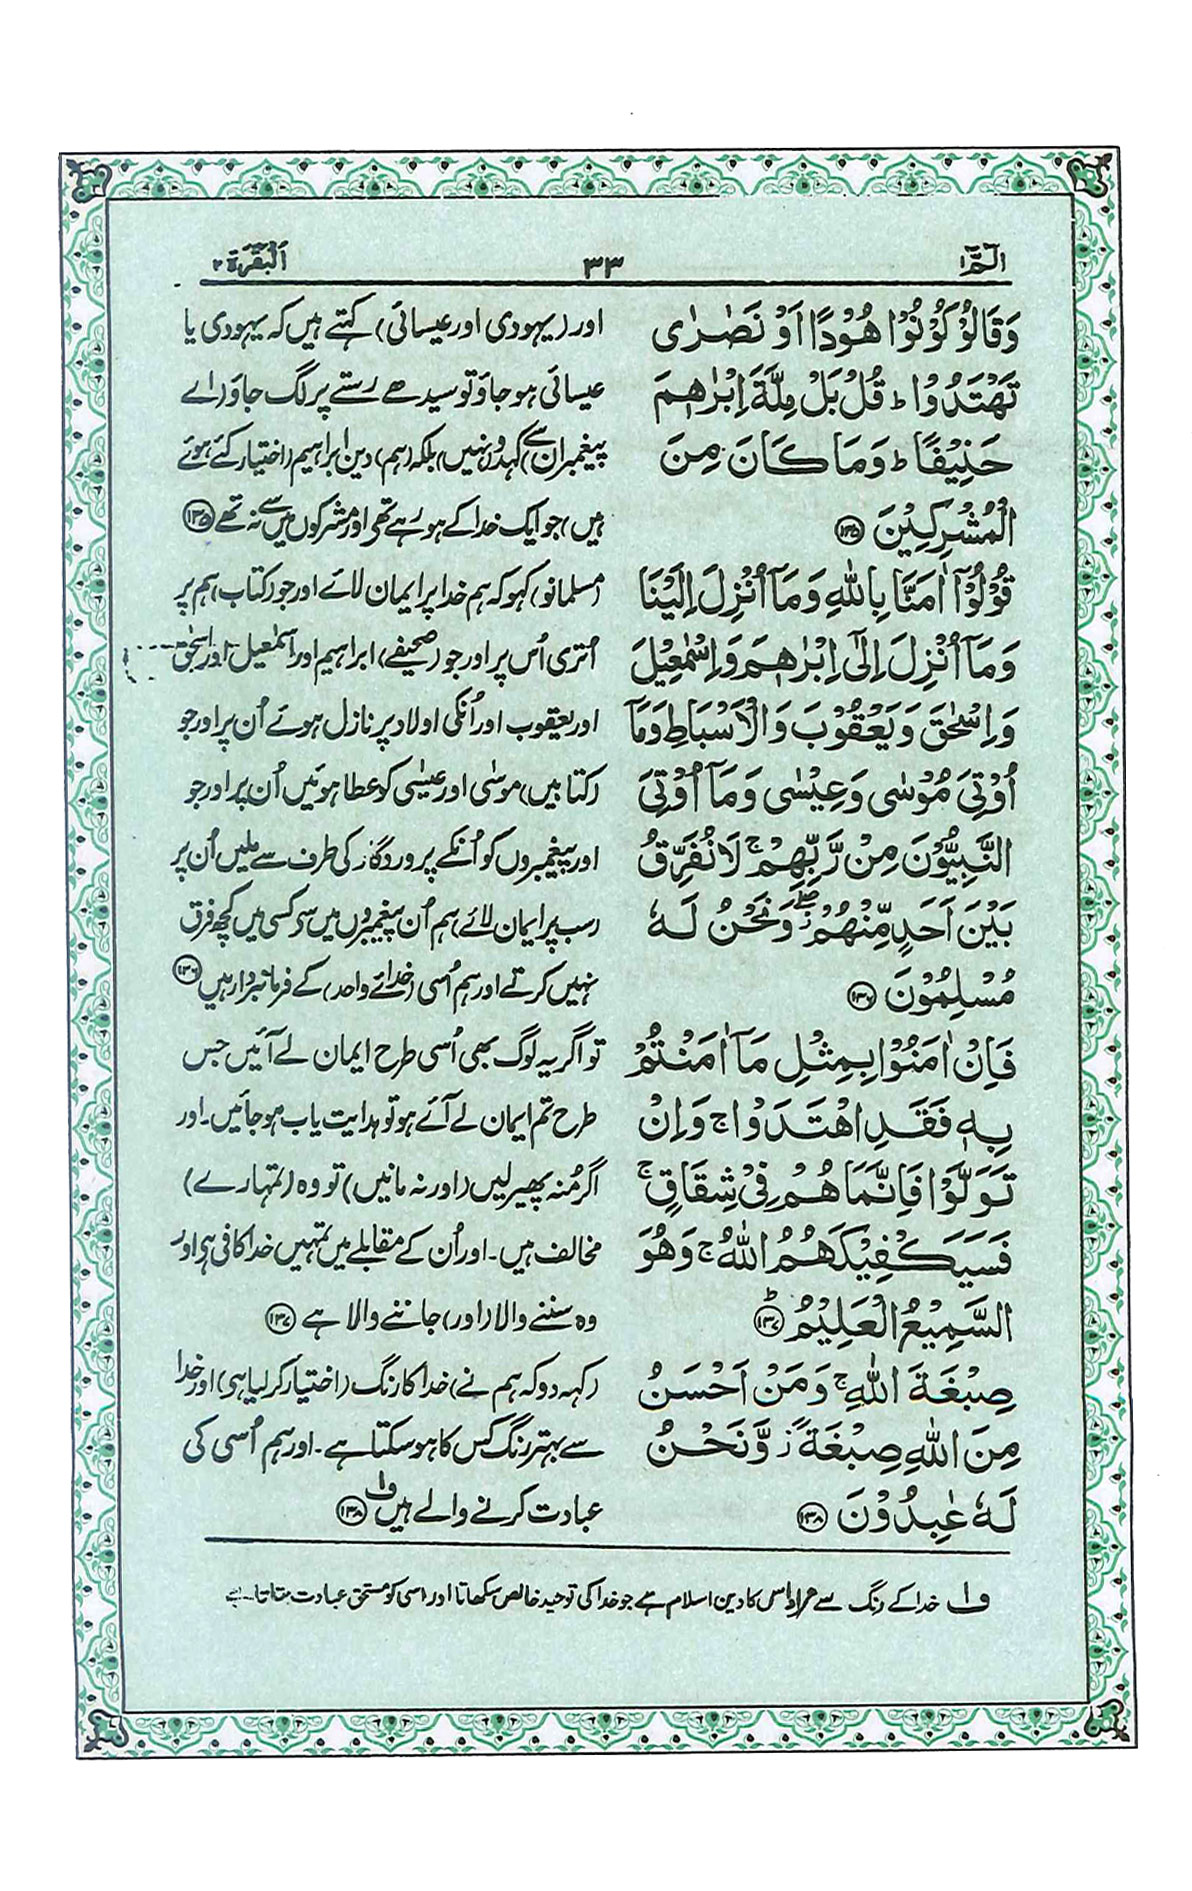 الٓمّٓ ١
٣٣
اَلْبَقَرَة ٢
وَقَالُوْا كُوْنُوْا هُوْدًا اَوْ نَصٰرٰى
تَهْتَدُوْا ؕ قُلْ بَلْ مِلَّةَ اِبْرٰهٖمَ
حَنِيْفًا ؕ وَمَا كَانَ مِنَ
الْمُشْرِكِيْنَ ﴿۱۳۵﴾
قُوْلُوْٓا اٰمَنَّا بِاللّٰهِ وَمَآ اُنْزِلَ اِلَيْنَا
وَمَآ اُنْزِلَ اِلٰٓى اِبْرٰهٖمَ وَاِسْمٰعِيْلَ
وَاِسْحٰقَ وَيَعْقُوْبَ وَالْاَسْبَاطِ وَمَآ
اُوْتِيَ مُوْسٰى وَعِيْسٰى وَمَآ اُوْتِيَ
النَّبِيُّوْنَ مِنْ رَّبِّهِمْ ۚ لَا نُفَرِّقُ
بَيْنَ اَحَدٍ مِّنْهُمْ ۖ وَنَحْنُ لَهٗ
مُسْلِمُوْنَ ﴿۱۳۶﴾
فَاِنْ اٰمَنُوْا بِمِثْلِ مَآ اٰمَنْتُمْ
بِهٖ فَقَدِ اهْتَدَوْا ۚ وَاِنْ
تَوَلَّوْا فَاِنَّمَا هُمْ فِيْ شِقَاقٍ ۚ
فَسَيَكْفِيْكَهُمُ اللّٰهُ ۚ وَهُوَ
السَّمِيْعُ الْعَلِيْمُ ؕ ﴿۱۳۷﴾
صِبْغَةَ اللّٰهِ ۚ وَمَنْ اَحْسَنُ
مِنَ اللّٰهِ صِبْغَةً ؗ وَّنَحْنُ
لَهٗ عٰبِدُوْنَ ﴿۱۳۸﴾
اور (یہودی اور عیسائی) کہتے ہیں کہ یہودی یا
عیسائی ہو جاؤ تو سیدھے رستے پر لگ جاؤ (اے
پیغمبر ان سے) کہدو (نہیں) بلکہ (ہم) دین ابراہیم (اختیار کئے ہوئے
ہیں) جو ایک خدا کے ہو رہے تھے اور مشرکوں میں سے نہ تھے ﴿۱۳۵﴾
(مسلمانو) کہو کہ ہم خدا پر ایمان لائے اور جو (کتاب) ہم پر
اُتری اُس پر اور جو (صحیفے) ابراہیم اور اسمٰعیل اور اسحٰق
اور یعقوب اور اُنکی اولاد پر نازل ہوئے اُن پر اور جو
(کتابیں) موسٰی اور عیسٰی کو عطا ہوئیں اُن پر اور جو
اور پیغمبروں کو اُنکے پروردگار کی طرف سے ملیں اُن پر
(سب پر ایمان لائے) ہم اُن پیغمبروں میں سے کسی میں کچھ فرق
نہیں کرتے اور ہم اُسی (خدائے واحد) کے فرمانبردار ہیں ﴿۱۳۶﴾
تو اگر یہ لوگ بھی اُسی طرح ایمان لے آئیں جس
طرح تم ایمان لے آئے ہو تو ہدایت یاب ہو جائیں۔ اور
اگر مُنہ پھیر لیں (اور نہ مانیں) تو وہ (تمہارے)
مخالف ہیں۔ اور اُن کے مقابلے میں تمہیں خدا کافی ہے اور
وہ سننے والا (اور) جاننے والا ہے ﴿۱۳۷﴾
(کہہ دو کہ ہم نے) خدا کا رنگ (اختیار کر لیا ہے) اور خدا
سے بہتر رنگ کس کا ہو سکتا ہے۔ اور ہم اُسی کی
عبادت کرنے والے ہیں ف۱ ﴿۱۳۸﴾
ف۱ خدا کے رنگ سے مراد اس کا دین اسلام ہے جو خدا کی توحید خالص سکھاتا اور اسی کو مستحق عبادت بتاتا ہے